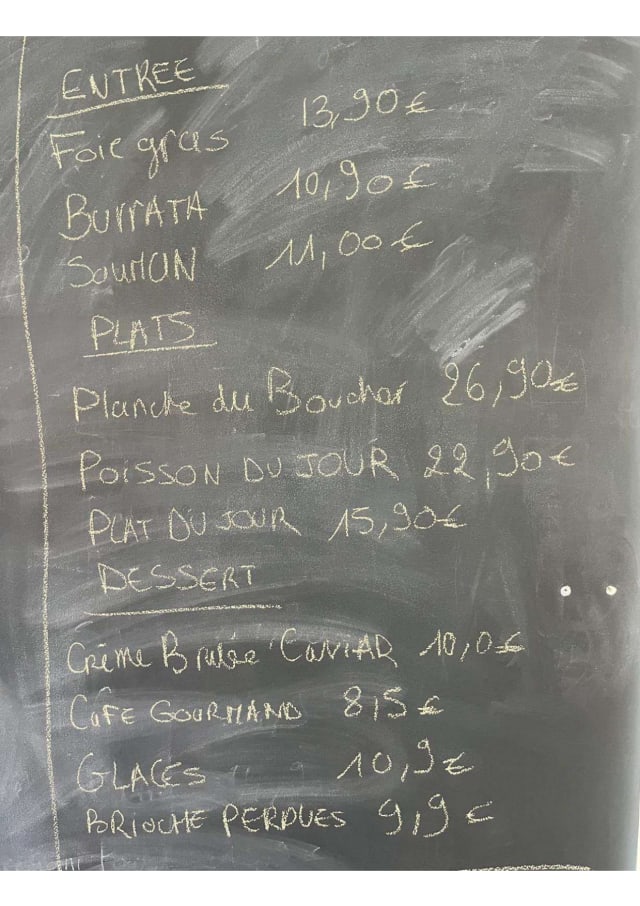 ENTREE
Foie gras 13,90€
BURRATA 10,90€
SAUMON 11,00€
PLATS
Planche du Boucher 26,90€
POISSON DU JOUR 22,90€
PLAT DU JOUR 15,90€
DESSERT
Crème Brulée CAVIAR 10,0€
CAFE GOURMAND 8,5€
GLACES 10,9€
BRIOCHE PERDUES 9,9€